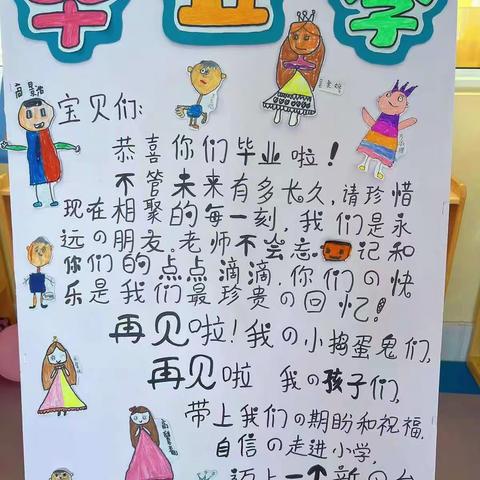 毕业季
宝贝们:
恭喜你们毕业啦!
不管未来有多长久,请珍惜
现在相聚的每一刻,我们是永
远の朋友。老师不会忘记和
你们的点点滴滴,你们の快
乐是我们最珍贵の回忆!
再见啦!我の小捣蛋鬼们,
再见啦 我の孩子们,
带上我们の期盼和祝福,
自信の走进小学,
迈上一个新の台